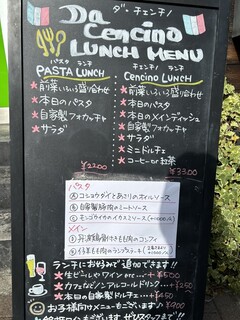 ダ・チェンチノ
Da Cencino
LUNCH MENU
パスタ ランチ
PASTA LUNCH
★前菜いろいろ盛り合わせ
★本日のパスタ
★自家製フォカッチャ
★サラダ
¥2200
チェンチノ ランチ
Cencino LUNCH
★前菜いろいろ盛り合わせ
★本日のパスタ
★本日のメインディッシュ
★自家製フォカッチャ
★サラダ
★ミニドルチェ
★コーヒーor紅茶
¥3300
パスタ
Ⓐコショウダイとあさりのオイルソース
Ⓑ自家製豚肉のミートソース
Ⓒモンゴウイカのイカスミソース
メイン
骨付きもも肉のコンフィ
ランチにお好みで追加できます!!
★生ビールやワイン etc… +¥500
★カフェなどノンアルコールドリンク +¥250
★本日の自家製ドルチェ… +¥450
お子様向けメニューもございます ¥900